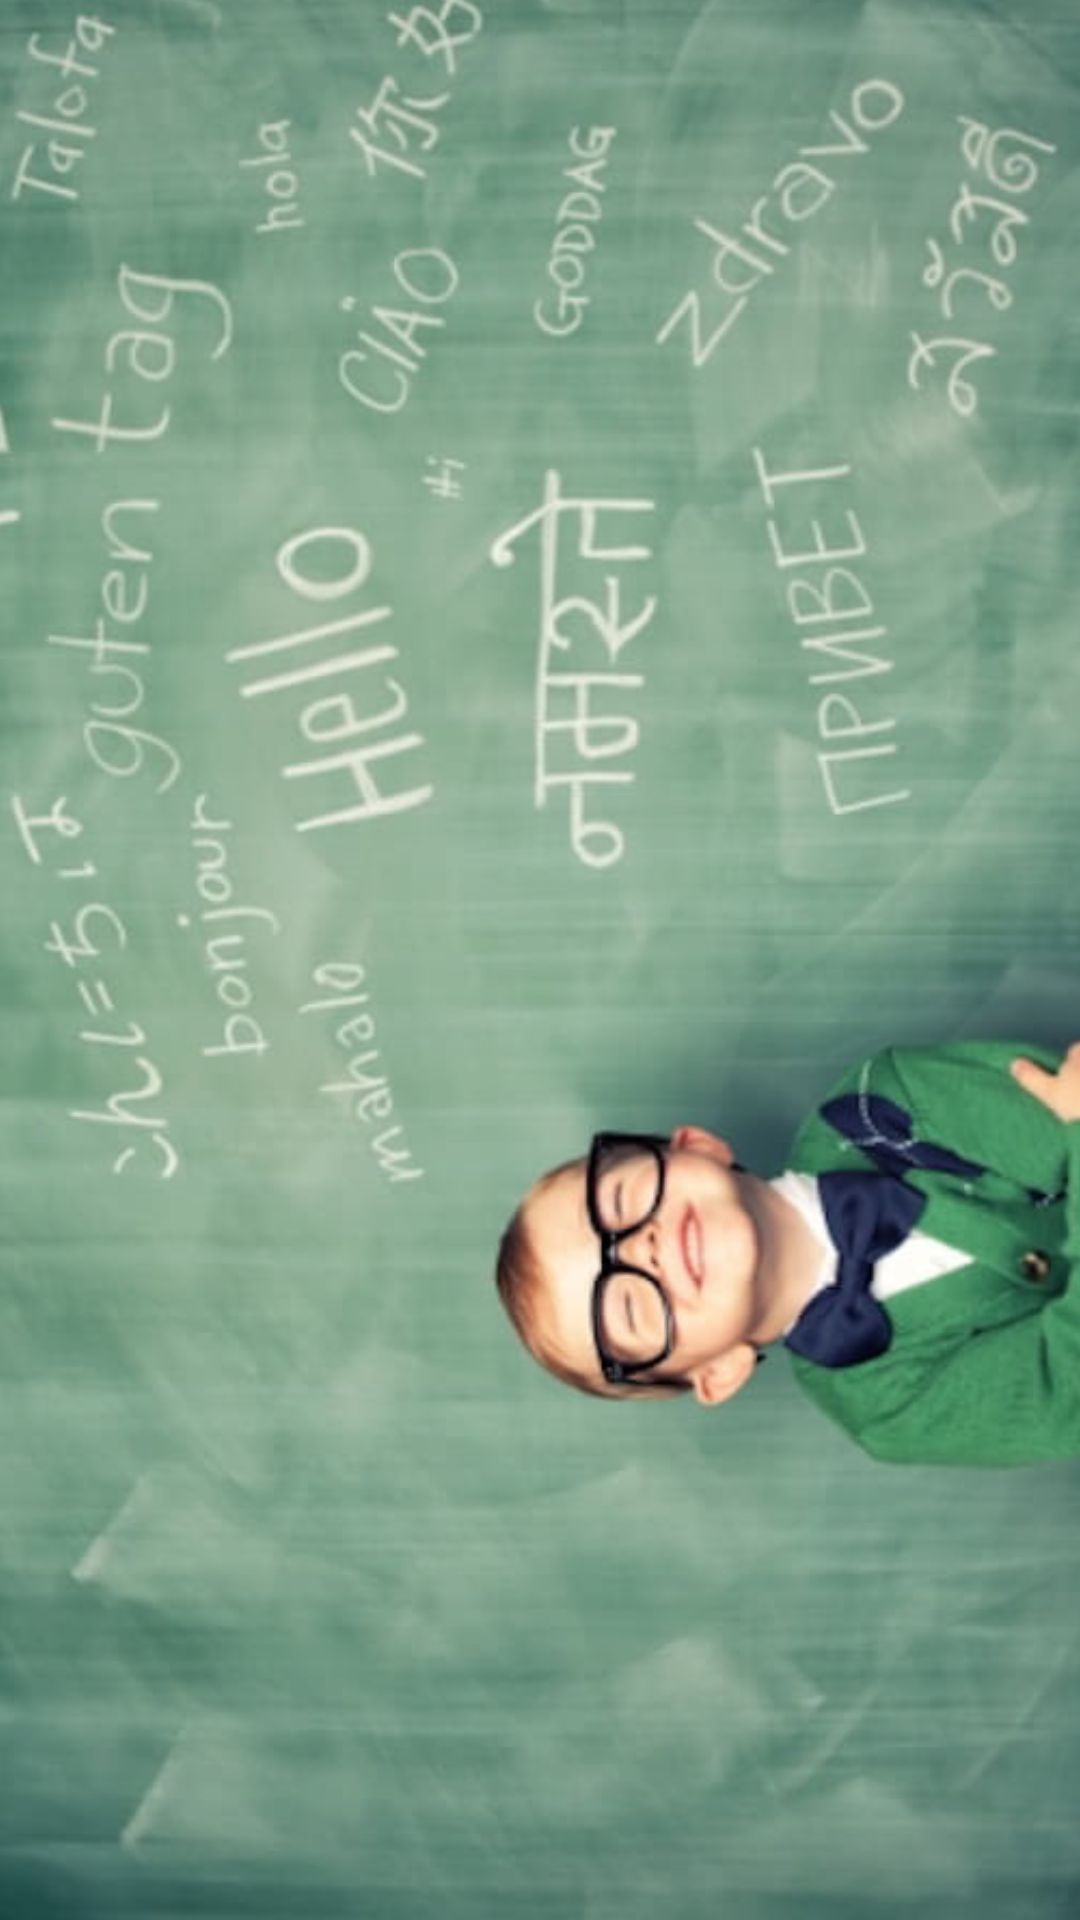 こんにちは
guten tag
Talofa
bonjour
hola
Hello
mahalo
CIAO
你好
Hi
नमस्ते
GODDAG
Zdravo
ПРИВЕТ
สวัสดี